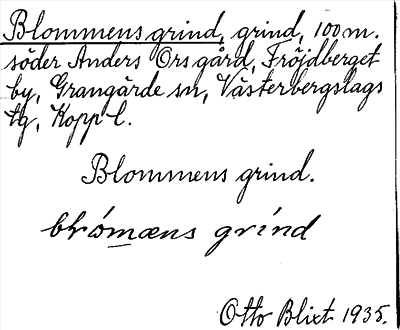 Blommens grind, grind, 100 m.
söder Anders Ors gård, Fröjdberget
by, Grangärde sn, Västerbergslags
tg, Kopp l.
Blommens grind.
blómæns grínd
Otto Blixt 1935.